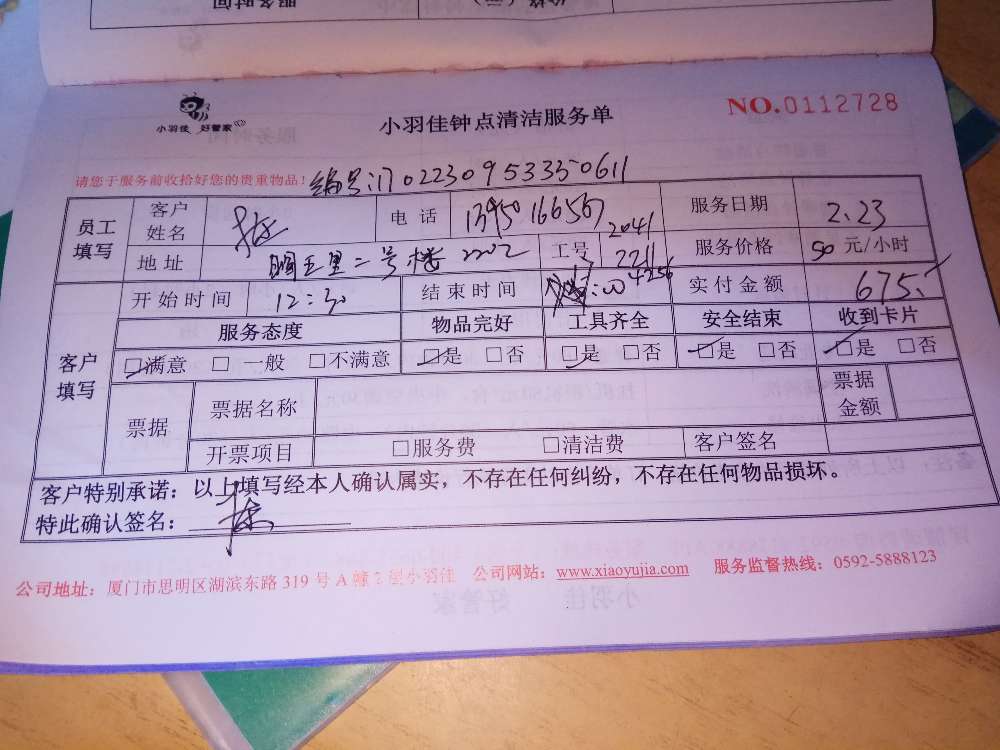 服务时间
小羽佳 好管家
小羽佳钟点清洁服务单
NO.0112728
请您于服务前收拾好您的贵重物品!
编号:
员工填写 客户姓名 电话 服务日期 2.23
地址 二号楼 2202 工号 2041 2211 4256 服务价格 50 元/小时
客户填写 开始时间 12:30 结束时间 实付金额 675.
服务态度 物品完好 工具齐全 安全结束 收到卡片
☑满意 □一般 □不满意 ☑是 □否 ☑是 □否 ☑是 □否 ☑是 □否
票据 票据名称 票据金额
开票项目 □服务费 □清洁费 客户签名
客户特别承诺：以上填写经本人确认属实，不存在任何纠纷，不存在任何物品损坏。
特此确认签名：
公司地址：厦门市思明区湖滨东路 319 号 A 幢 2 层小羽佳 公司网站：www.xiaoyujia.com 服务监督热线：0592-5888123